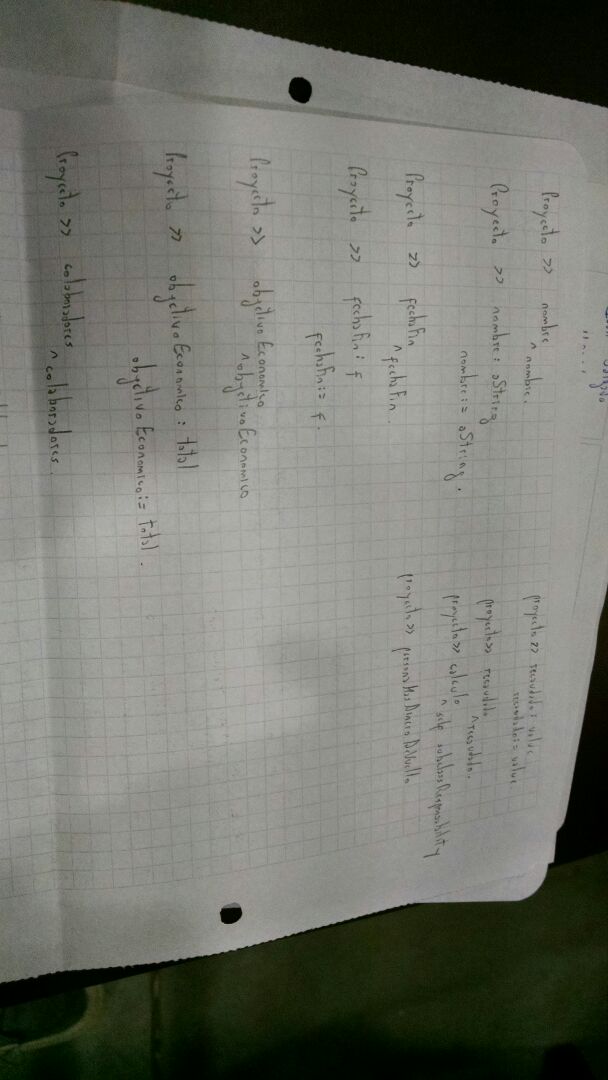 Proyecto >> nombre
^ nombre.
Proyecto >> nombre: oString
nombre:= oString.
Proyecto >> fechaFin
^ fechaFin.
Proyecto >> fechaFin: f
fechaFin:= f.
Proyecto >> objetivoEconomico
^ objetivoEconomico
Proyecto >> objetivoEconomico: total
objetivoEconomico:= total.
Proyecto >> colaboradores
^ colaboradores.
proyecto >> recaudado: value
recaudado:= value
proyecto >> recaudado
^ recaudado.
proyecto >> calculo
^ self subclassResponsibility
proyecto >> personaMasDineroDevuelto